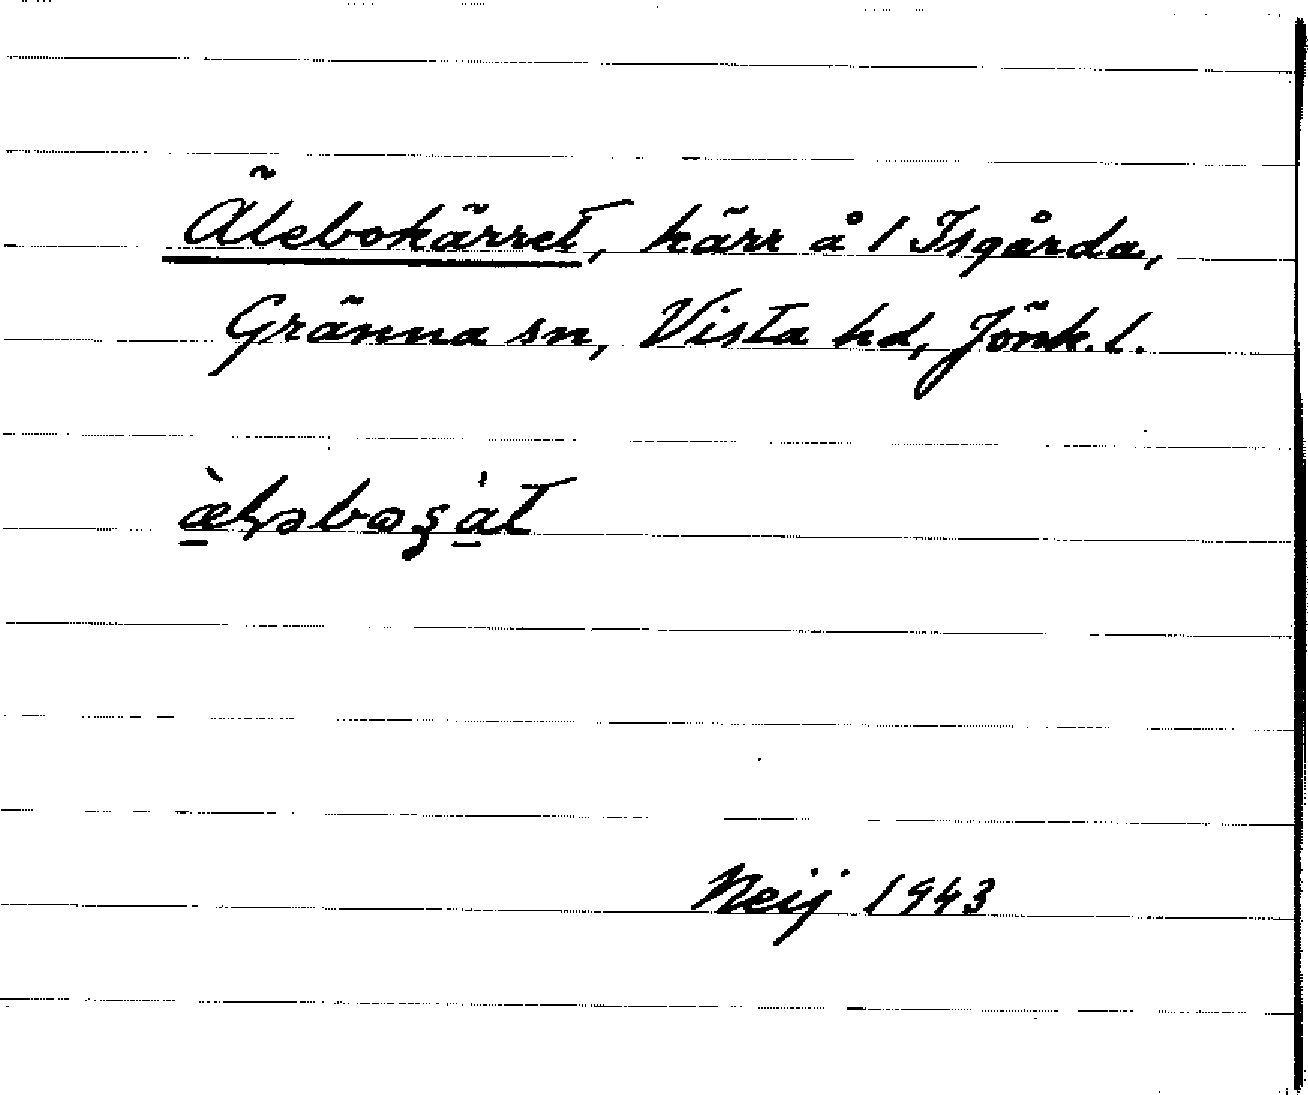 Älebokärret, kärr å / Isgårda,
Gränna sn, Vista hd, Jönk. l.
Neij 1943